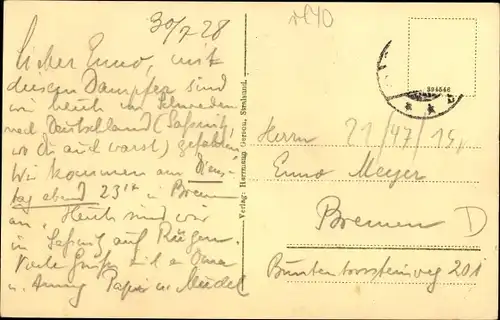 30/7 28
Lieber Enno, mit
diesem Dampfer sind
wir heute von Schweden
nach Deutschland (Saßnitz,
wo du auch warst) gefahren.
Wir kommen am Diens-
tag abend 23 in Bremen
an. Heute sind wir
in Saßnitz auf Rügen.
Viele Grüße
u. Papa u. Mudel
Verlag: Herrmann Gerson, Stralsund.
394546
Herrn 21/47/15
Enno Meyer
Bremen D
Buntentorssteinweg 201